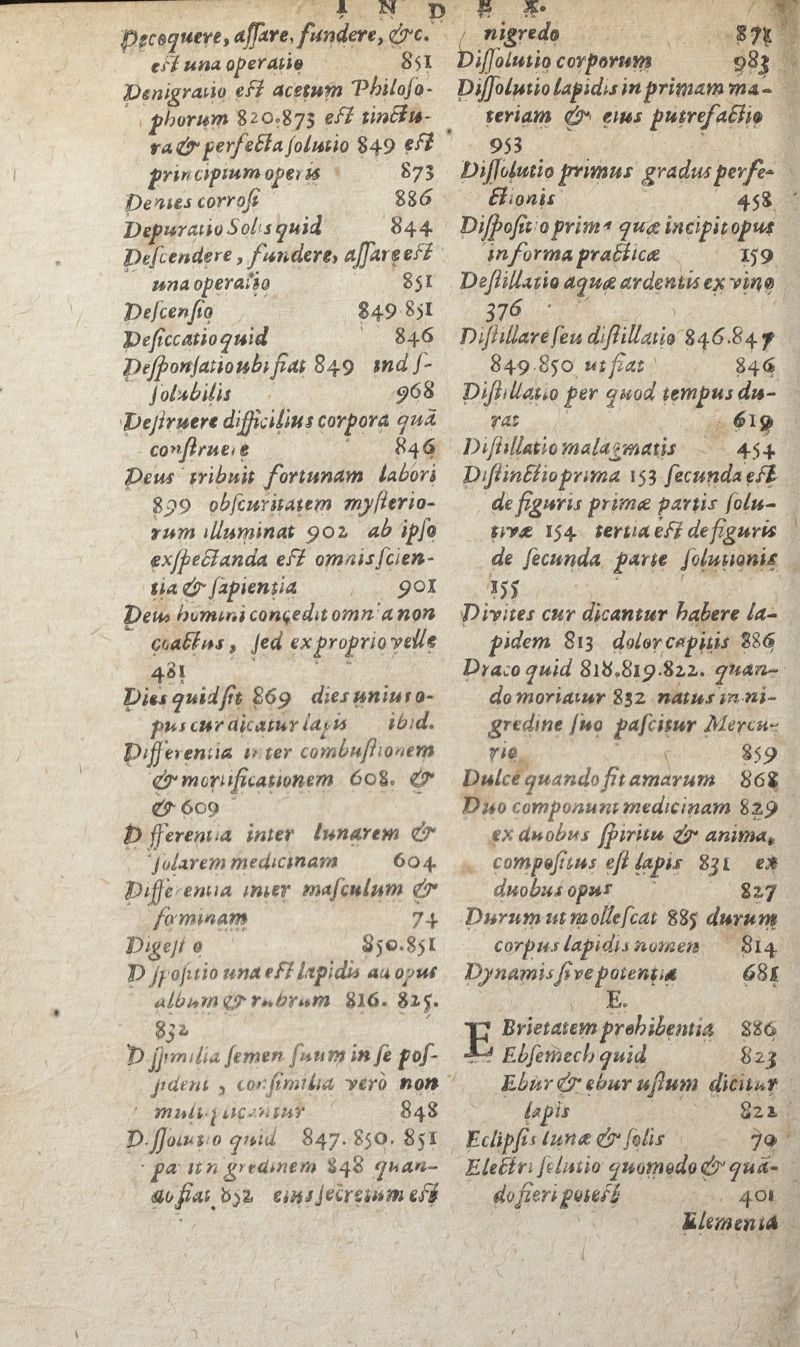 INDEX.
Decoquere, aſſare, fundere, &c.
eſt una operatio 851
Denigratio eſt acetum Philoſo-
phorum 820.873 eſt tinctu-
ra & perfecta ſolutio 849 eſt
principium operis 873
Dentes corroſi 886
Depuratio Solis quid 844
Deſcendere, fundere, aſſare eſt
una operatio 851
Deſcenſio 849 851
Deſiccatio quid 846
Deſponſatio ubi fiat 849 indiſ-
ſolubilis 968
Deſtruere difficilius corpora quã
conſtruere 846
Deus tribuit fortunam labori
899 obſcuritatem myſterio-
rum illuminat 902 ab ipſo
exſpectanda eſt omnis ſcien-
tia & ſapientia 901
Deus homini concedit omnia non
coactus, ſed ex proprio velle
481
Dies quid ſit 869 dies unius o-
pus cur dicatur lapis ibid.
Differentia inter combuſtionem
& mortificationem 608. &
& 609
Differentia inter lunarem &
ſolarem medicinam 604
Differentia inter maſculum &
fœminam 74
Digeſtio 850.851
Diſpoſitio una eſt lapidis ad opus
album & rubrum 816. 825.
832
Diſſimilia ſemen ſuum in ſe poſ-
ſident, conſimilia verò non
multiplicantur 848
Diſſolutio quid 847. 850. 851
parit nigredinem 848 quan-
do fiat 852 eius ſecretum eſt
nigredo 871
Diſſolutio corporum 983
Diſſolutio lapidis in primam ma-
teriam & eius putrefactio
953
Diſſolutio primus gradus perfe-
ctionis 458
Diſpoſitio prima quæ incipit opus
in forma practicæ 159
Deſtillatio aquæ ardentis ex vino
376
Diſtillare ſeu diſtillatio 846.847
849.850 ut fiat 846
Diſtillatio per quod tempus du-
rat 619
Diſtillatio malagmatis 454
Diſtinctio prima 153 ſecunda eſt
de figuris primæ partis ſolu-
tivæ 154 tertia eſt de figuris
de ſecunda parte ſolutionis
155
Divites cur dicantur habere la-
pidem 813 dolor capitis 886
Draco quid 818.819.822. quan-
do moriatur 832 natus in ni-
gredine ſuo paſcitur Mercu-
rio 859
Dulce quando fit amarum 868
Duo componunt medicinam 829
ex duobus ſpiritu & anima,
compoſitus eſt lapis 831 ex
duobus opus 827
Durum ut molleſcat 885 durum
corpus lapidis nomen 814
Dynamis ſive potentia 681
E.
EBrietatem prohibentia 886
Ebſemech quid 823
Ebur & ebur uſtum dicitur
lapis 822
Eclipſis lunæ & ſolis 70
Electri ſolutio quomodo & quã-
do fieri poteſt 401
Elementa